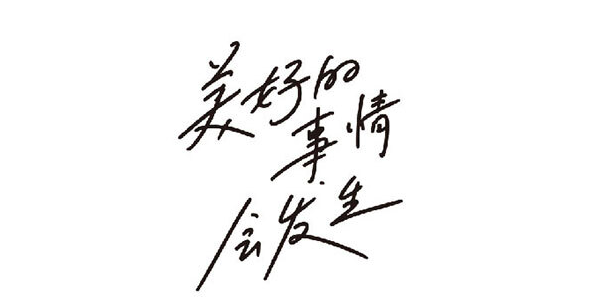 美好的
事情
会发生